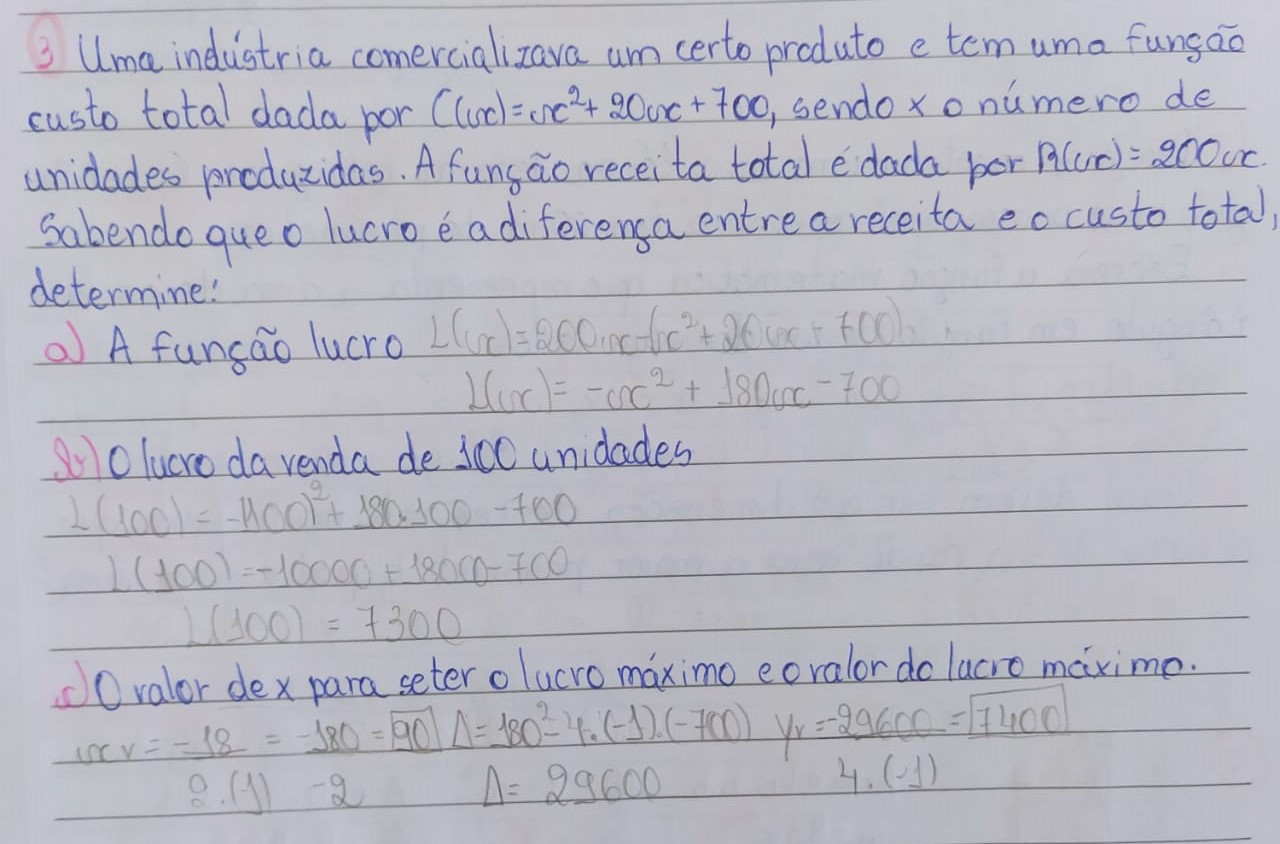 3 Uma indústria comercializava um certo produto e tem uma função
custo total dada por C(x)=x²+20x+700, sendo x o número de
unidades produzidas. A função receita total é dada por R(x)=200x.
Sabendo que o lucro é a diferença entre a receita e o custo total,
determine:
a) A função lucro L(x)=200x-(x²+20x+700)
L(x)=-x²+180x-700
b) O lucro da venda de 100 unidades
L(100)=-(100)²+180.100-700
L(100)=-10000+18000-700
L(100)=7300
c) O valor de x para se ter o lucro máximo e o valor do lucro máximo.
xv=-18 = -180 = 90 Δ=180²-4.(-1).(-700) yv=-29600=7400
2.(1) -2 Δ= 29600 4.(-1)